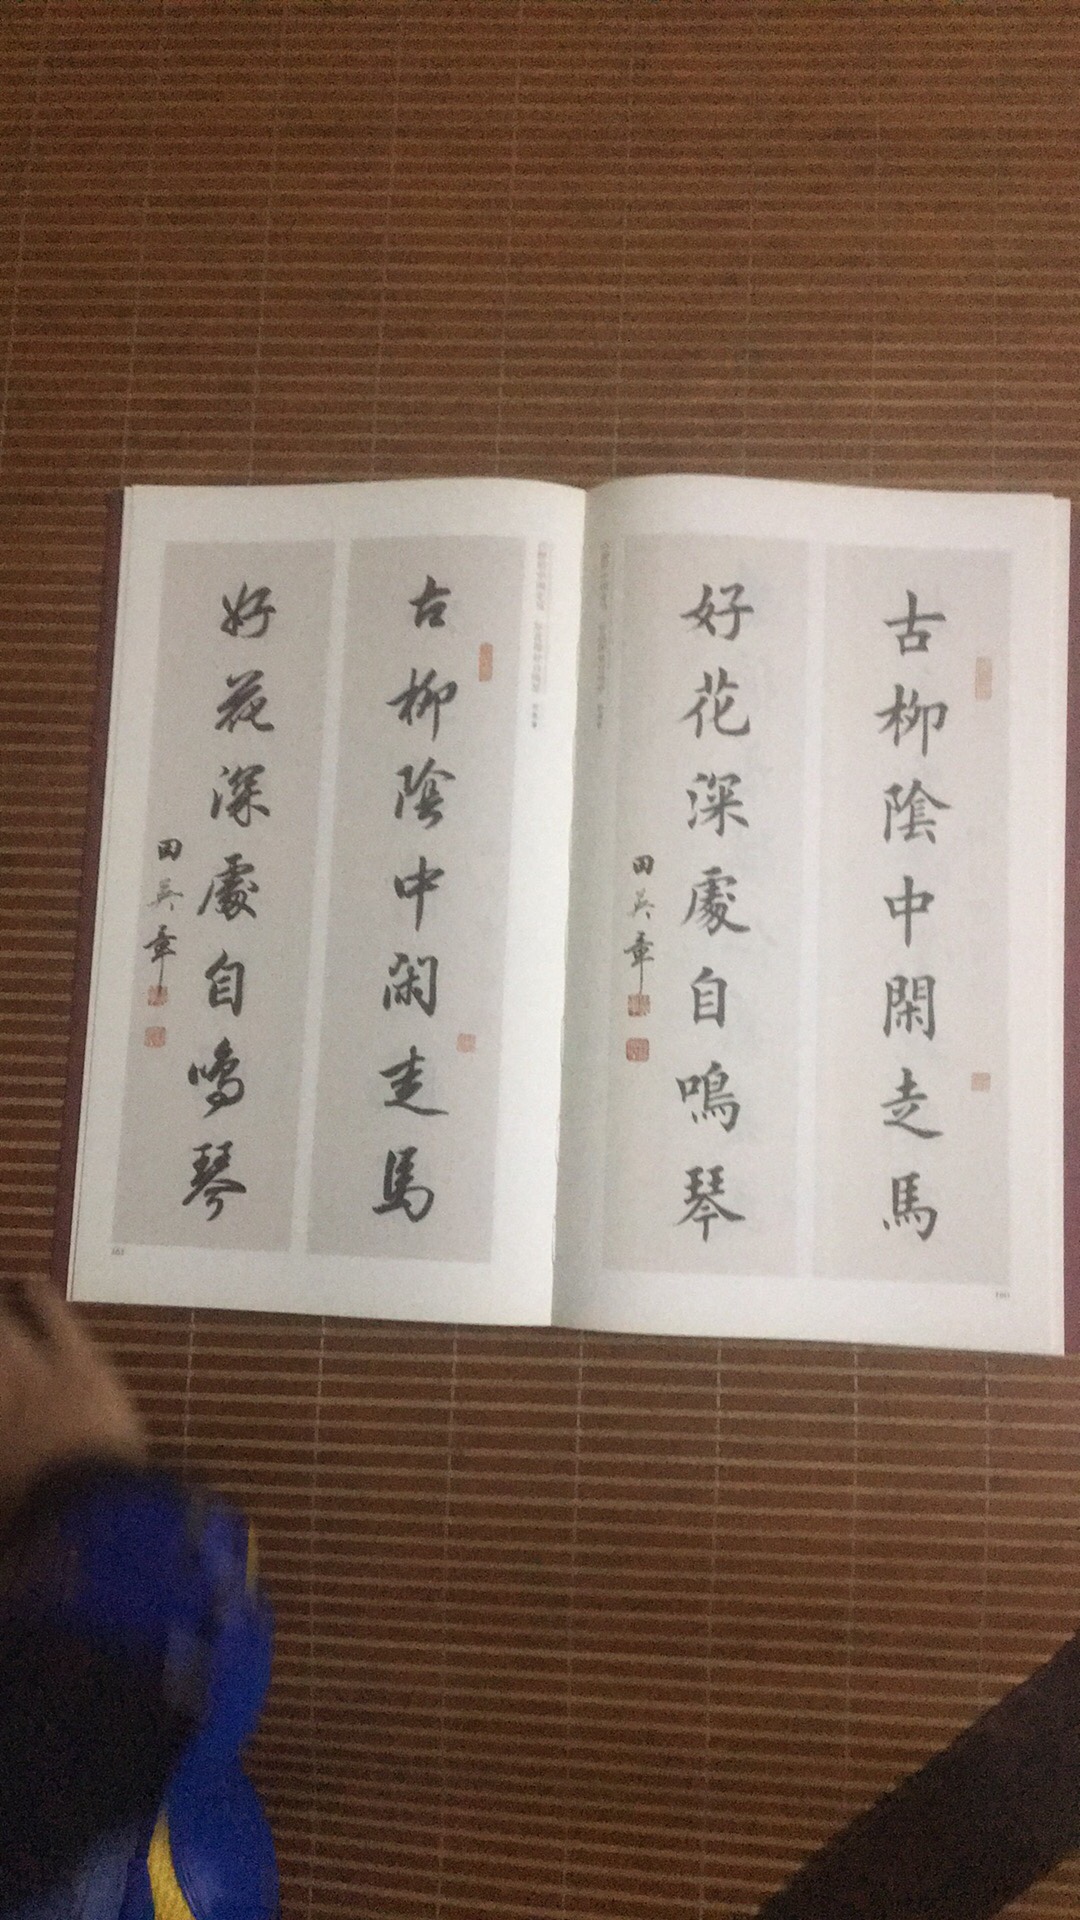 古柳陰中閑走馬
好花深處自鳴琴
田英章
古柳陰中閑走馬
好花深處自鳴琴
田英章